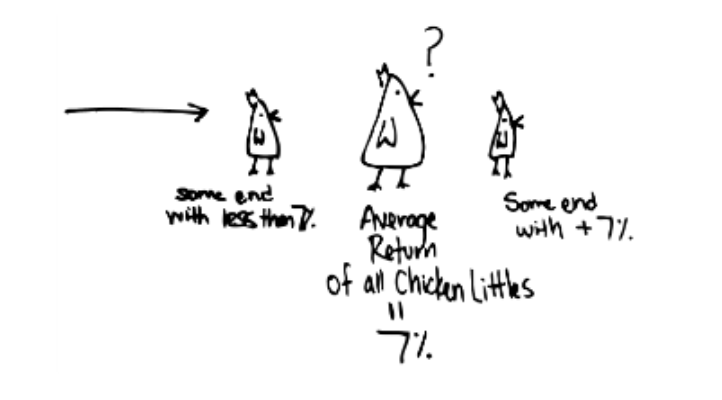 ?
some end
with less than 7%.
Average
Return
of all Chicken Littles
=
7%.
Some end
with + 7%.